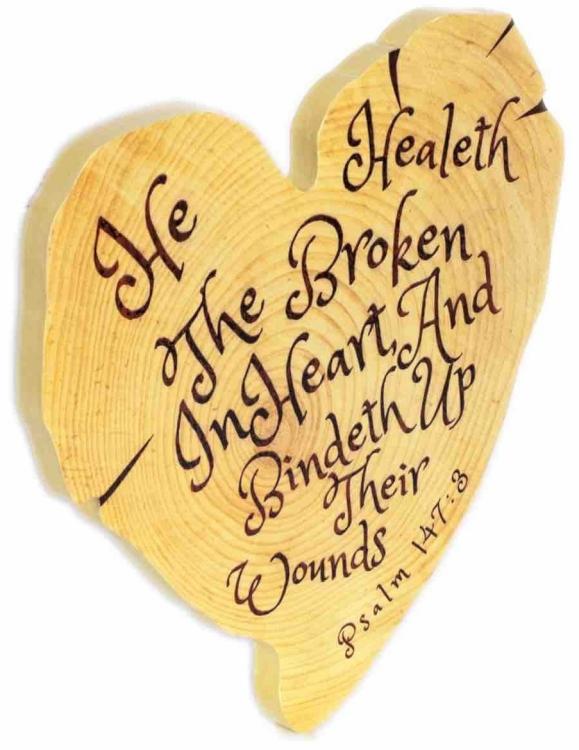 He Healeth
The Broken
In Heart, And
Bindeth Up
Their
Wounds
Psalm 147:3